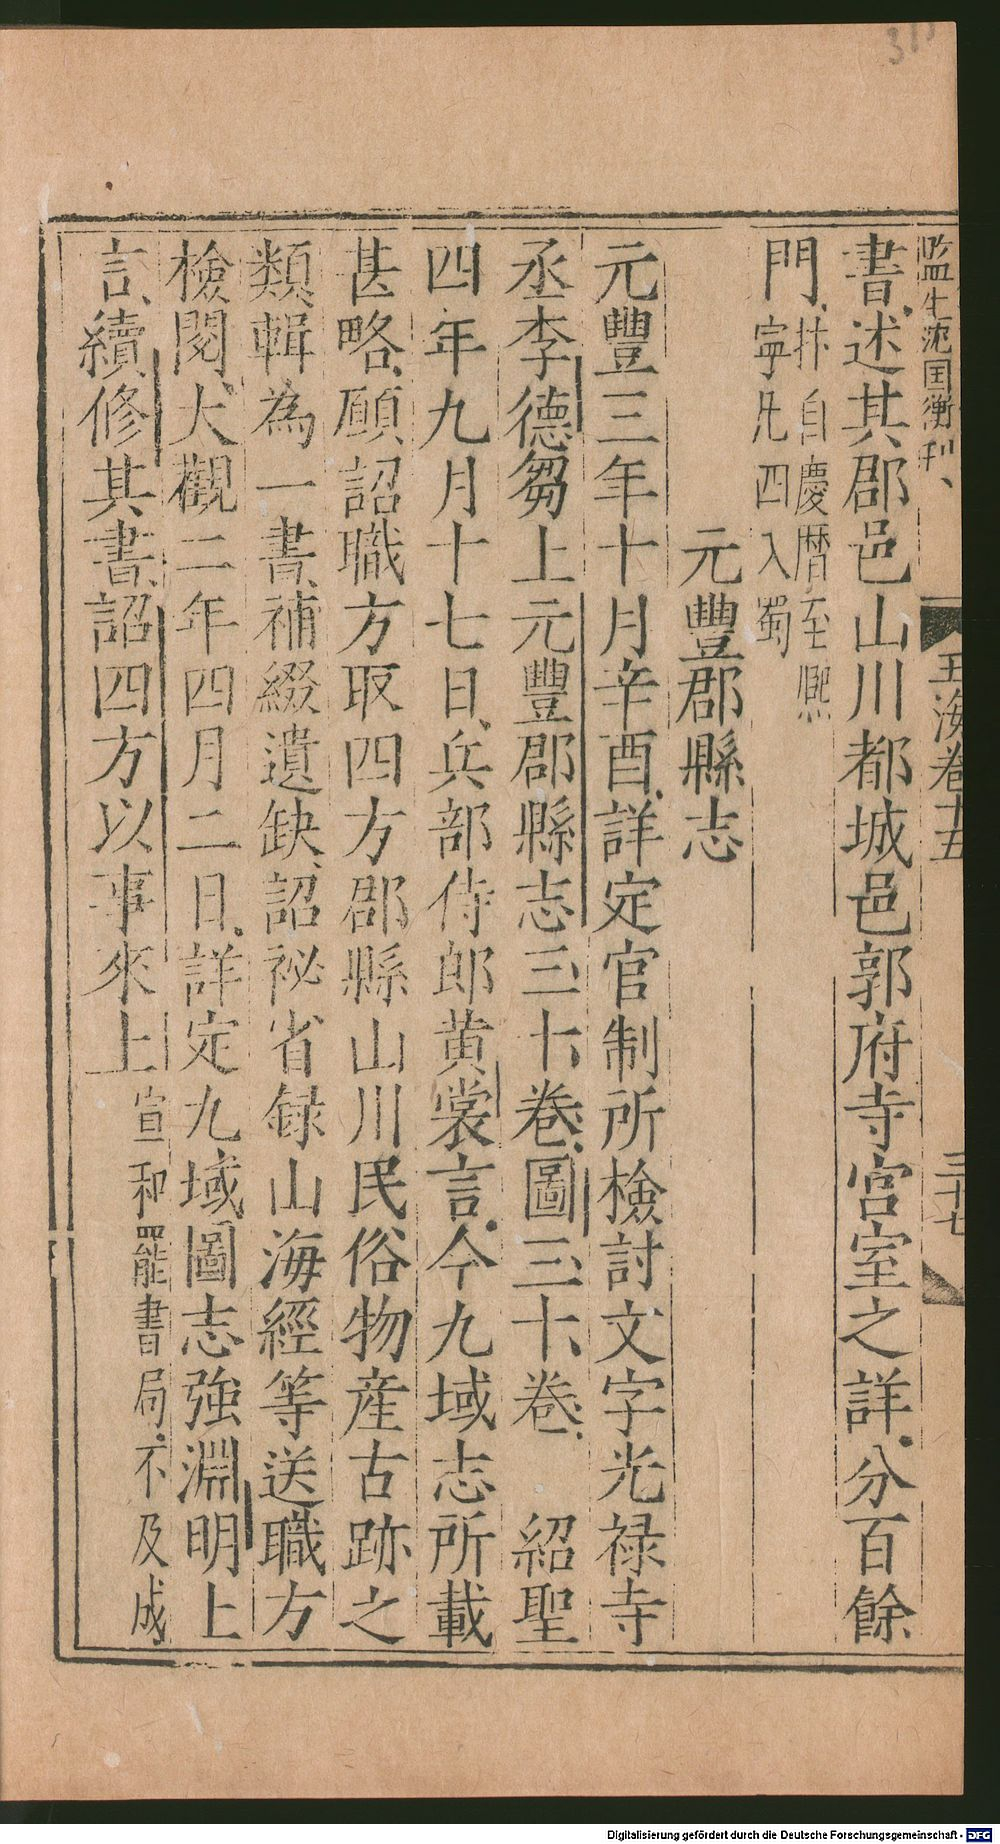 監生沈囯衡刊、
玉海卷十五
三十七
書述其郡邑山川都城邑郭府寺宮室之詳分百餘
門
抃自慶曆至熈
寧凡四入蜀
元豐郡縣志
元豐三年十月辛酉詳定官制所檢討文字光禄寺
丞李德芻上元豐郡縣志三十卷圖三十卷 紹聖
四年九月十七日兵部侍郎黄裳言今九域志所載
甚略願詔職方取四方郡縣山川民俗物產古跡之
類輯為一書補綴遺缺詔祕省録山海經等送職方
檢閱大觀二年四月二日詳定九域圖志強淵明上
言續修其書詔四方以事來上
宣和罷書局不及成
Digitalisierung gefördert durch die Deutsche Forschungsgemeinschaft - DFG